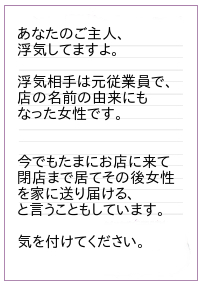 あなたのご主人、
浮気してますよ。
浮気相手は元従業員で、
店の名前の由来にも
なった女性です。
今でもたまにお店に来て
閉店まで居てその後女性
を家に送り届ける、
と言うこともしています。
気を付けてください。